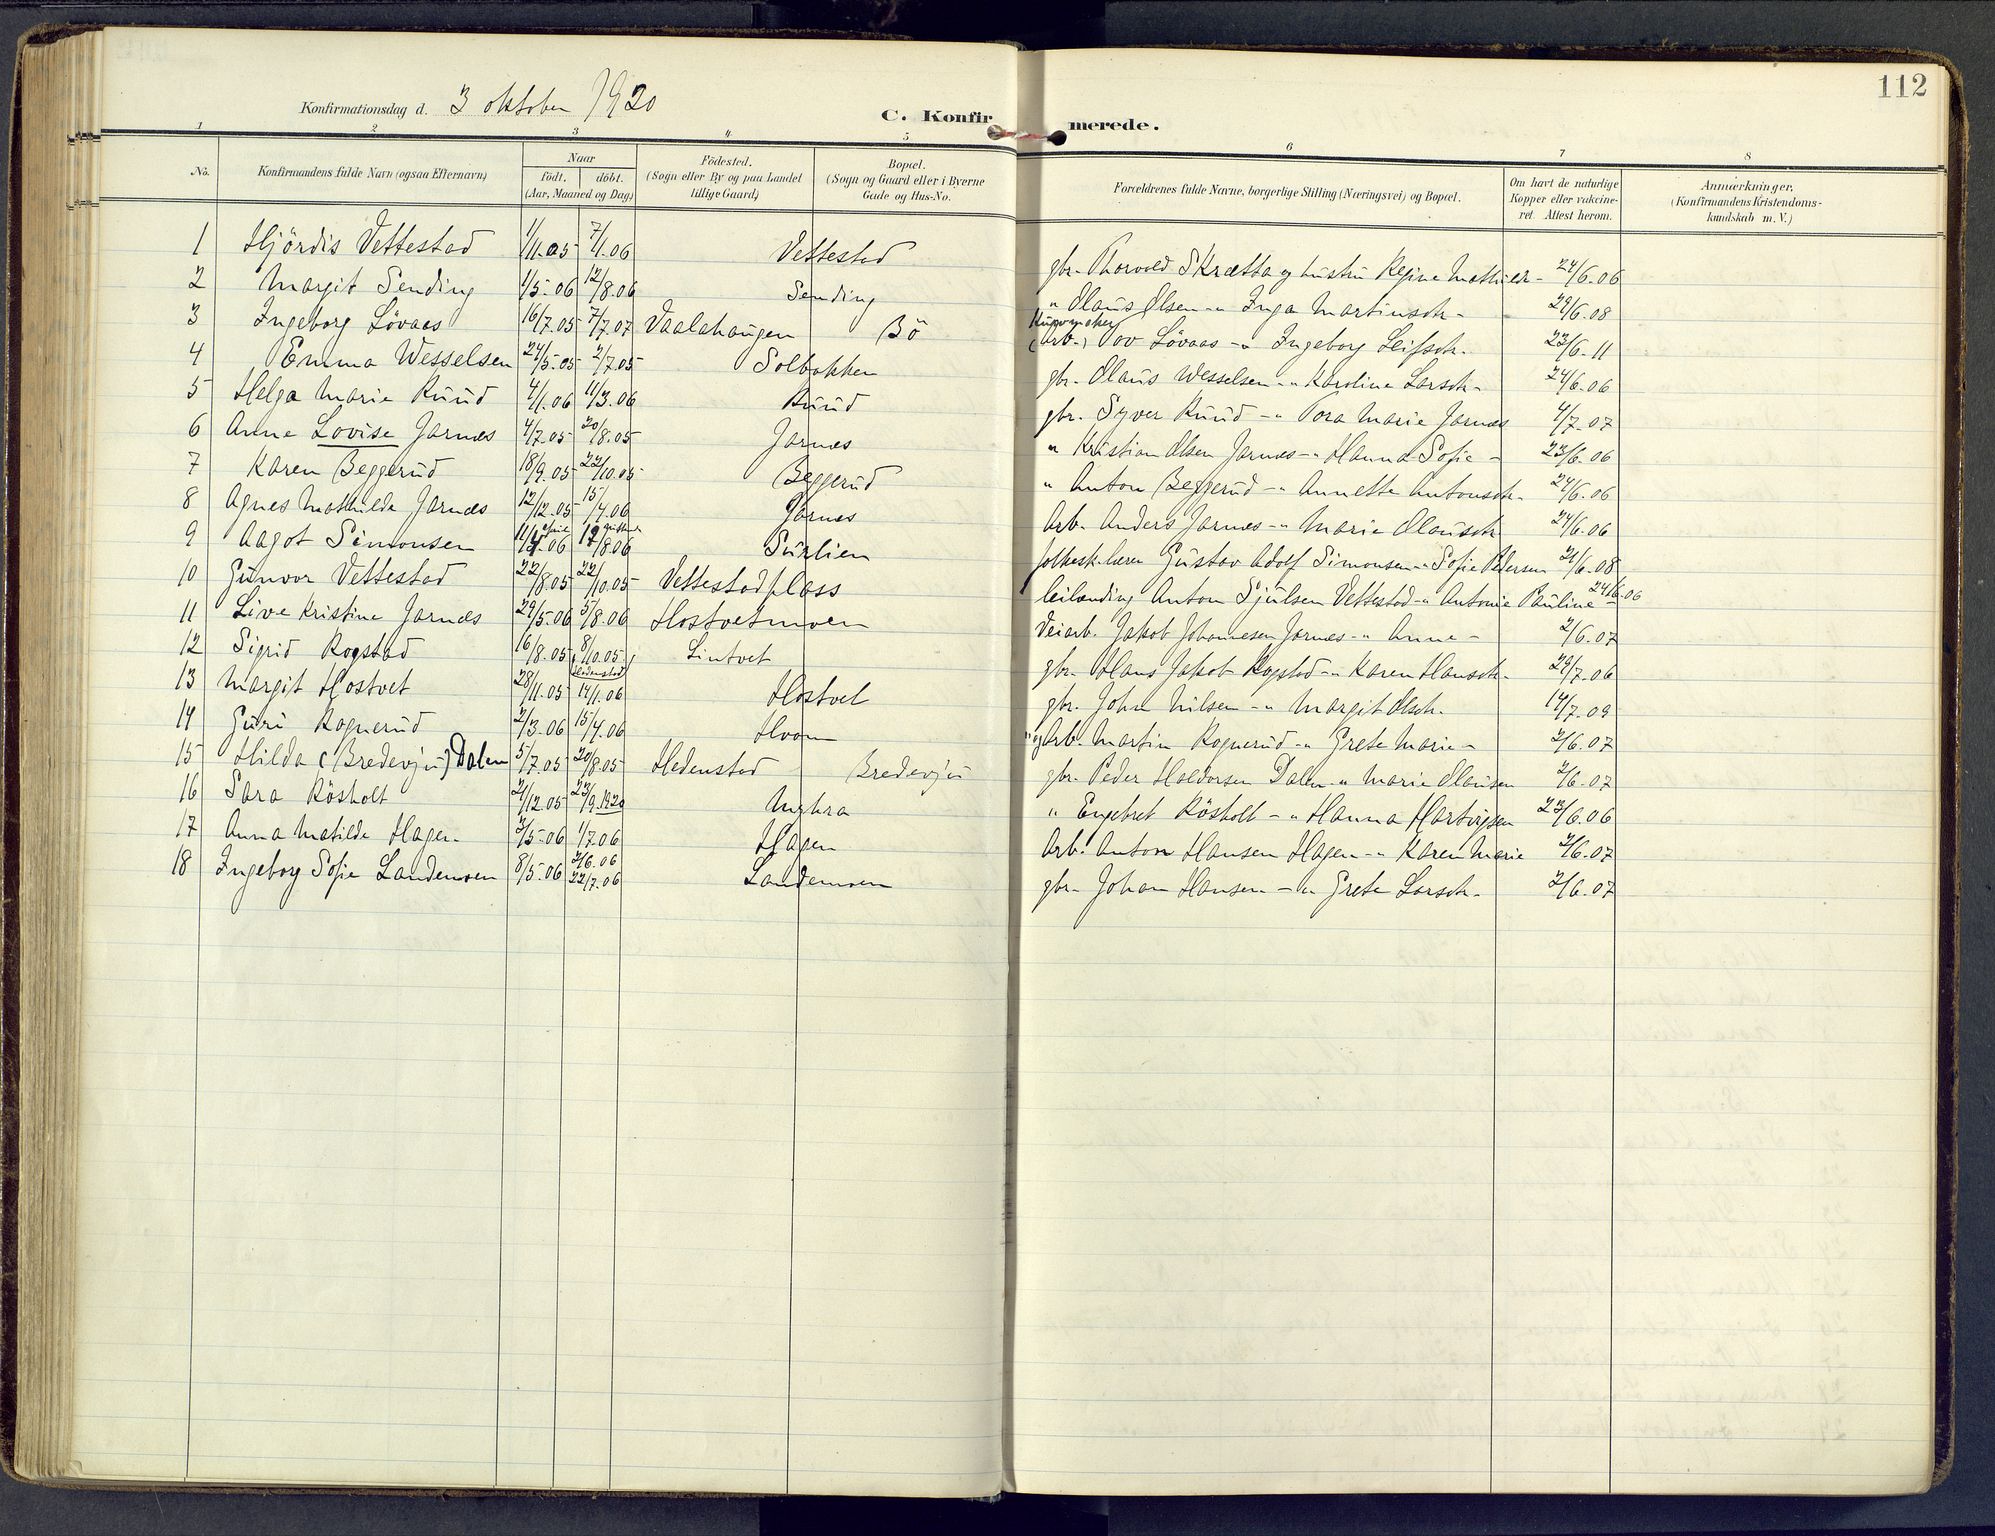 112
Konfirmationsdag d. 3 oktober 1920
C. Konfirmerede.
1 2 3 4 5 6 7 8
No. Konfirmandens fulde Navn (ogsaa Efternavn) Naar födt. döbt. (Aar, Maaned og Dag) Födested. (Sogn eller By og paa Landet tillige Gaard) Bopæl. (Sogn og Gaard eller i Byerne Gade og Hus-No. Forældrenes fulde Navne, borgerlige Stilling (Næringsvei) og Bopæl. Om havt de naturlige Kopper eller vakcineret. Attest herom. Anmærkninger. (Konfirmandens Kristendomskundskab m. V.)
1 Hjördis Vettestad 1/11.05 7/1.06 Vettestad gbr. Thorvald Skrætta og hustru Regine 24/6.06
2 Margit Sending 1/5-06 12/8.06 Sending " Olaus Olsen - " Inga Martinsdr. - 29/6.08
3 Ingeborg Lövaas 16/7.05 7/7.07 Vaalahaugen Bö (Arb.) Tov Lövaas - " Ingeborg Leifsdr. 23/6-11
4 Emma Wesselsen 24/5.05 2/7.05 Solbakken gbr. Olaus Wesselsen - " Karoline Larsdr. 24/6.06
5 Helga Marie Ruud 4/1.06 11/3.06 Ruud gbr. Syver Ruud - " Tora Marie Jarnæs 4/7.07
6 Anne Lovise Jarnæs 4/7.05 20/8.05 Jarnæs " Kristian Olsen Jarnæs - " Hanna Sofie - 23/6.06
7 Karen Beggerud 18/9.05 22/10.05 Beggerud " Anton Beggerud - " Annette Antonsdr. 24/6.06
8 Agnes Mathilde Jarnæs 12/12.05 15/4.06 Jarnæs Arb. Anders Jarnæs - " Marie Olausdr. 24/6.06
9 Aagot Simonsen 06 12/8.06 Surlien folkesk.lærer Gustav Adolf Simonsen - " Sofie Pedersen 21/6.08
10 Gunvor Vettestad 22/8.05 22/10.05 Vettestadplass leilending Anton Sjulsen Vettestad - " Antonie Pauline - 24/6.06
11 Live Kristine Jarnæs 29/5.06 5/8.06 Hostvetmoen Veiarb. Jakob Johannesen Jarnæs - " Anne - 2/6.07
12 Sigrid Rogstad 16/8.05 8/10.05 (Hedenstad) Lintvet gbr. Hans Jakob Rogstad - " Karen Hansdr. 29/7.06
13 Margit Hostvet 28/11.05 14/1.06 Hostvet gbr. John Nilsen - " Margit Olsdr. 14/7.09
14 Guri Rognerud 2/3.06 15/4.06 Hvam Arb. Martin Rognerud - " Grete Marie - 2/6.07
15 Hilda (Bredevju) Dalen 5/7.05 20/8.05 Hedenstad Bredevju gbr. Peder Haldorsen Dalen - " Marie Olausen 2/6.07
16 Sara Rösholt 21/12.05 23/9.1920 Myhra " Engebret Rösholt - " Hanna Hartvigsen 23/6.06
17 Anna Matilde Hagen 3/5.06 1/7.06 Hagen Arb. Anton Hansen Hagen - " Karen Marie 2/6.07
18 Ingeborg Sofie Landemoen 8/5.06 3/6.06 22/7.06 Landemoen gbr. Johan Hansen - " Grete Larsdr. 2/6.07